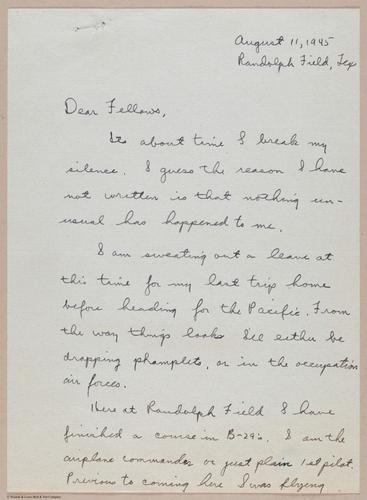 August 11, 1945
Randolph Field, Tex
Dear Fellows,
Its about time I break my
silence. I guess the reason I have
not written is that nothing un-
usual has happened to me.
I am sweating out a leave at
this time for my last trip home
before heading for the Pacific. From
the way things looks I'll either be
dropping phamplets, or in the occupation
air forces.
Here at Randolph Field I have
finished a course in B-29's. I am the
airplane commander or just plain 1st pilot.
Previous to coming here I was flying